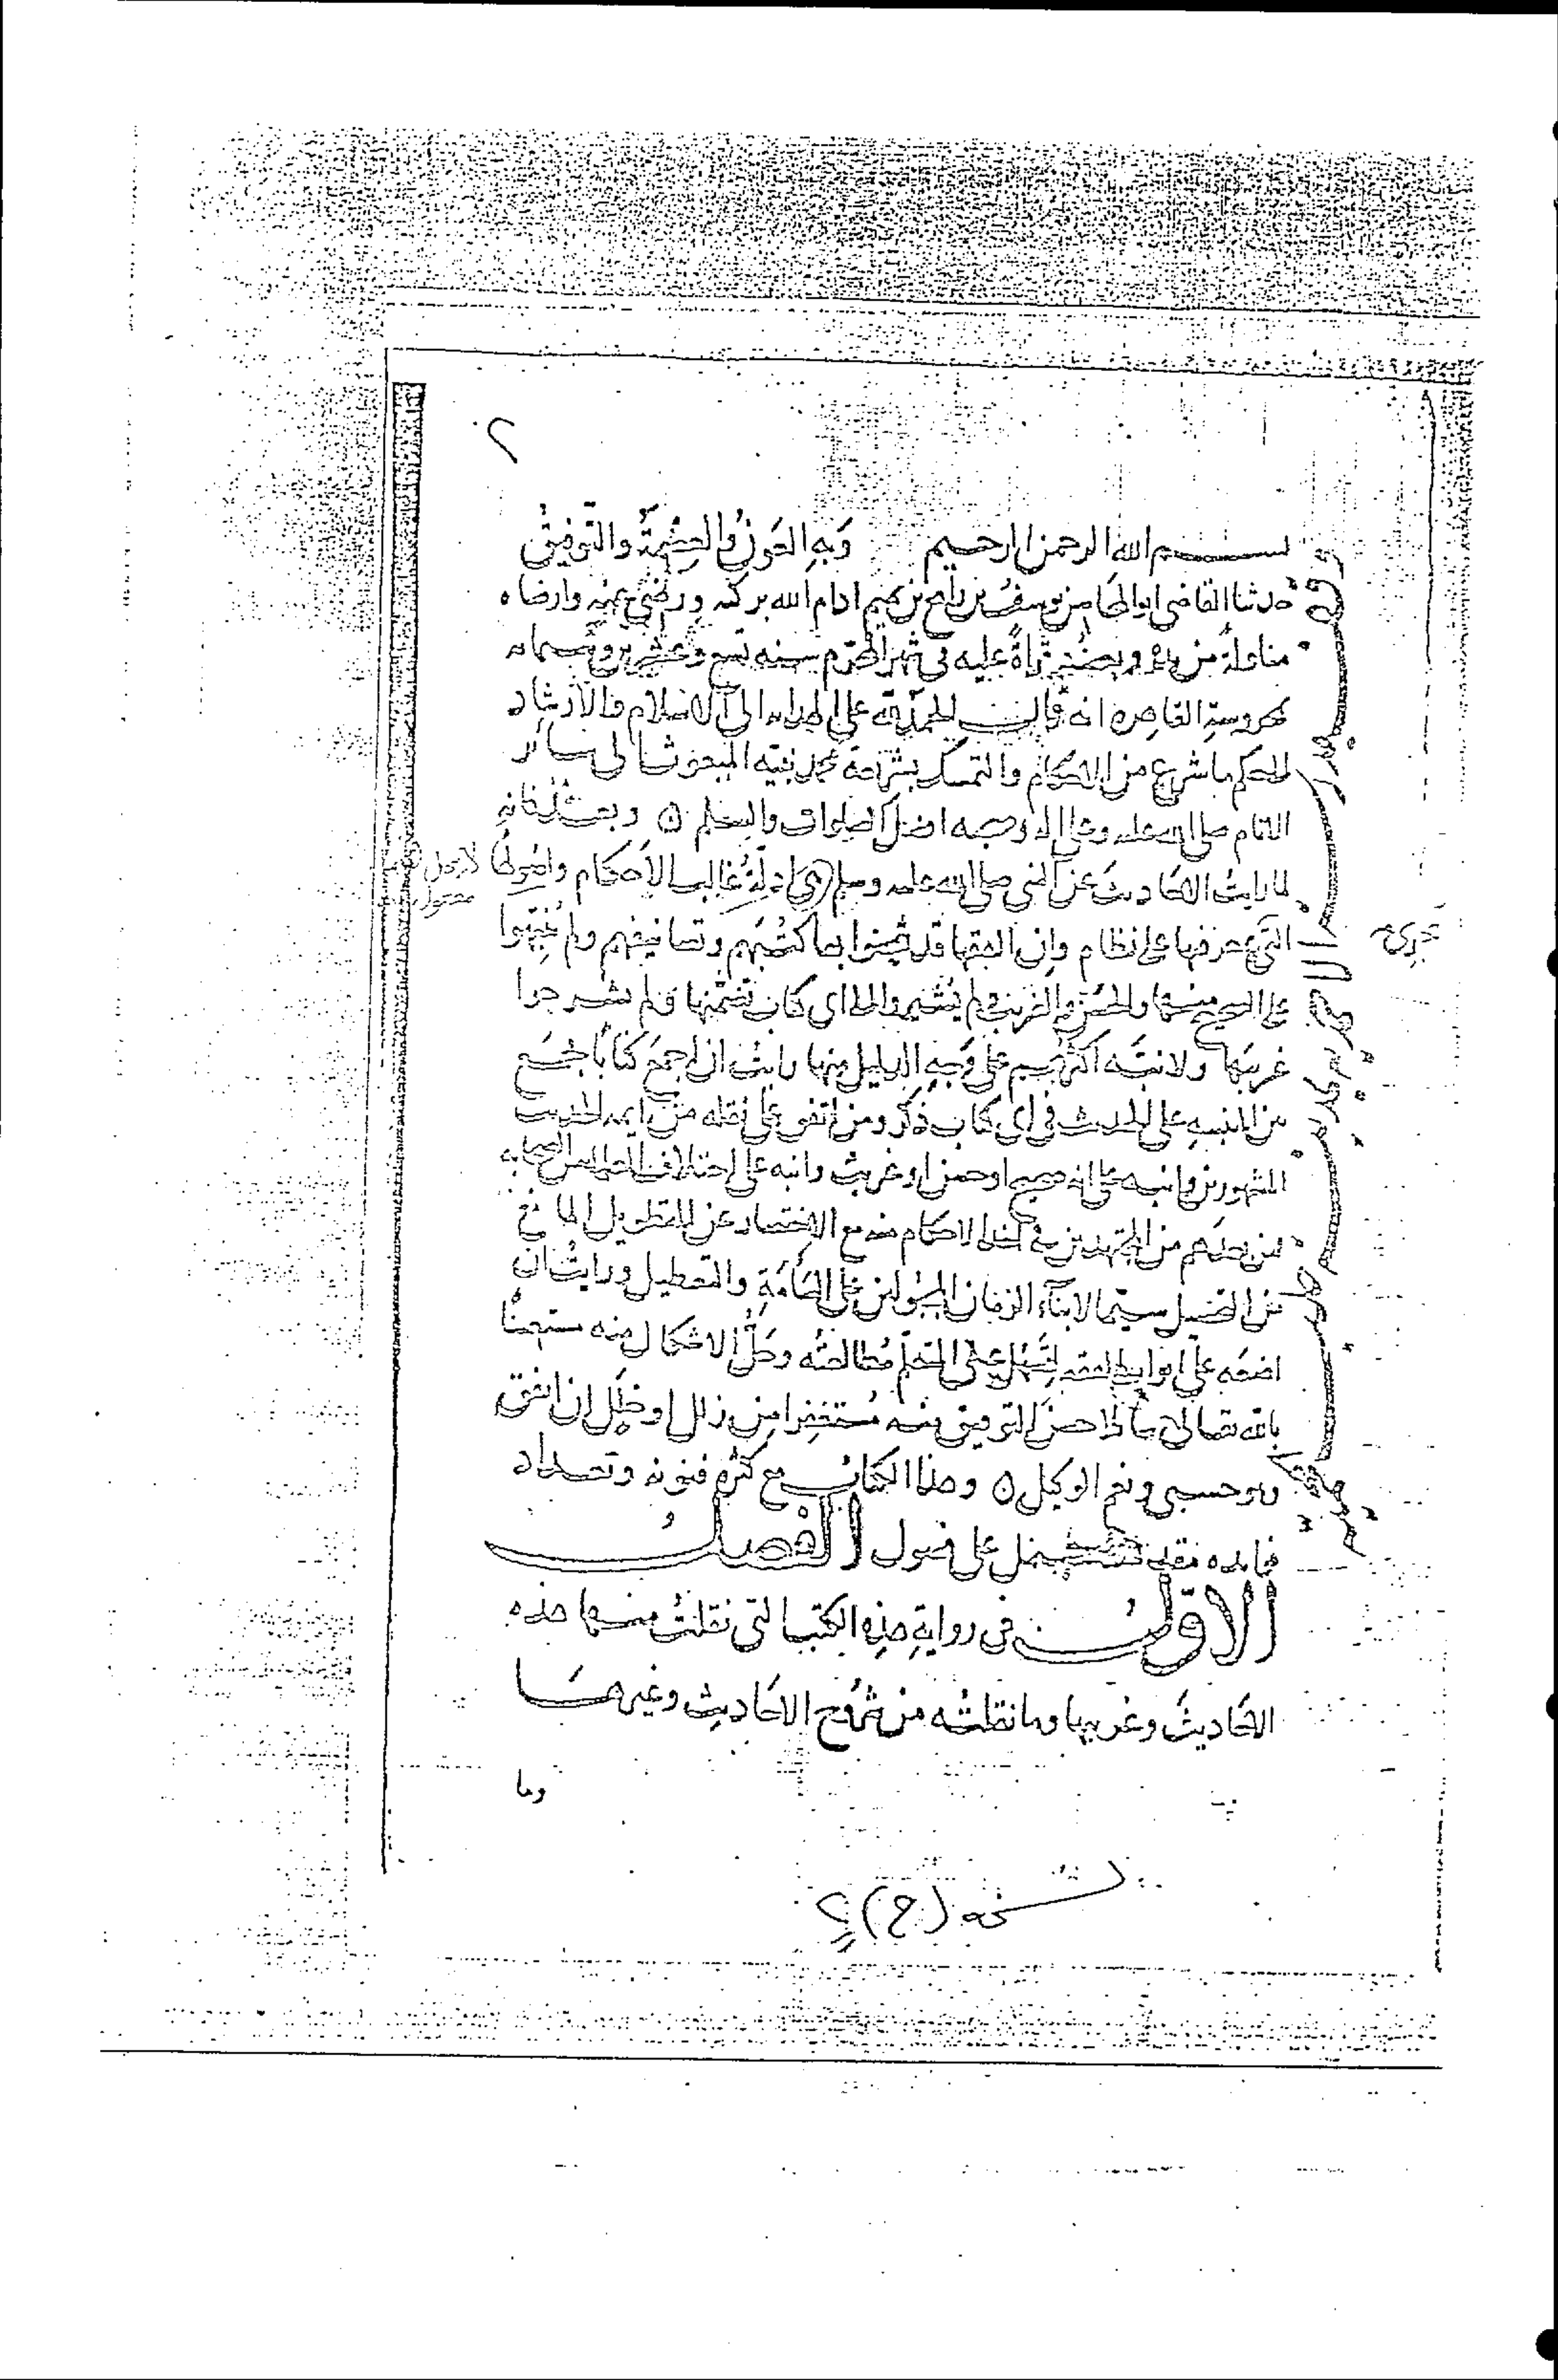 ٢
بسم الله الرحمن الرحيم وَبِهِ العَوْنُ والعِصْمَةُ والتَّوفيقُ
حدثنا القاضي ابو المحاسن يوسفُ بن رافع بن تميم ادام الله بركته ورضي عنه وارضاه
مناولةً من يده وبعضُه قراةً عليه في شهر المحرم سنه تسع وعشرين وستمائه
بمحروسةِ القاهره انه قال الحمد لله على الهدايه الى الاسلام والارشاد
لمحكم ما شرع من الاحكام والتمسك بشريعة محمد نبيه المبعوث الى سائر
الانام صلى الله عليه وعلى اله وصحبه افضل الصلوات والسلم ٥ وبعدُ فانه
لما رايتُ الاحاديثَ عن النبي صلى الله عليه وسلم هي ادلَّةُ غالب الاحكام واصُولها
التي حروفها على نظام وان الفقها قد شحنوا بها كُتُبهم وتصانيفهم ولم يُنَبِّهوا
على الصحيح منها والحسن والغريب ولم يُشيروا الى اي كتاب تضمَّنها ولم يشرحوا
غريبَها ولا نبَّه اكثرهم على وَجهِ الدليل منها رايتُ ان اجمعَ كتاباً يجمع
من التنبيهِ على الحديث في اي كتاب ذُكر ومن اتفق على نقله من ايمه الحديث
المشهورين وانبه على انه صحيح او حسن او غريبُ وانبه على اختلاف العلما من الصحابه
ومن بعدهم من المجتهدين في اخذ الاحكام منه مع الاختصار عن التطويل المانع
من التحصيل سيَّما لابنآء الزمان المجبُولين على السَّآمَةِ والتعطيل ورايتُ ان
اضعَه على ابواب الفقه ليَسْهُل على المتعلّم مُطالعتُه وحَلُّ الاشكال منه مستعيناً
بالله تعالى سائلا حسنَ التوفيق منه مُستغفِرا من زلل او خَلَل ان اتفق
وهو حسبي ونعم الوكيل ٥ وهذا الكتابُ مع كثرةِ فنونه وتعداد
فوايده يشتمل على فصول الفصلُ
الاوّلُ في روايةِ هذِه الكتب التي نقلتُ منها هذه
الاحَاديثَ وغريبها وما نقلتُه من شُرُوح الاحَاديثِ وغيرها
وما
نسخه (ح) ٢